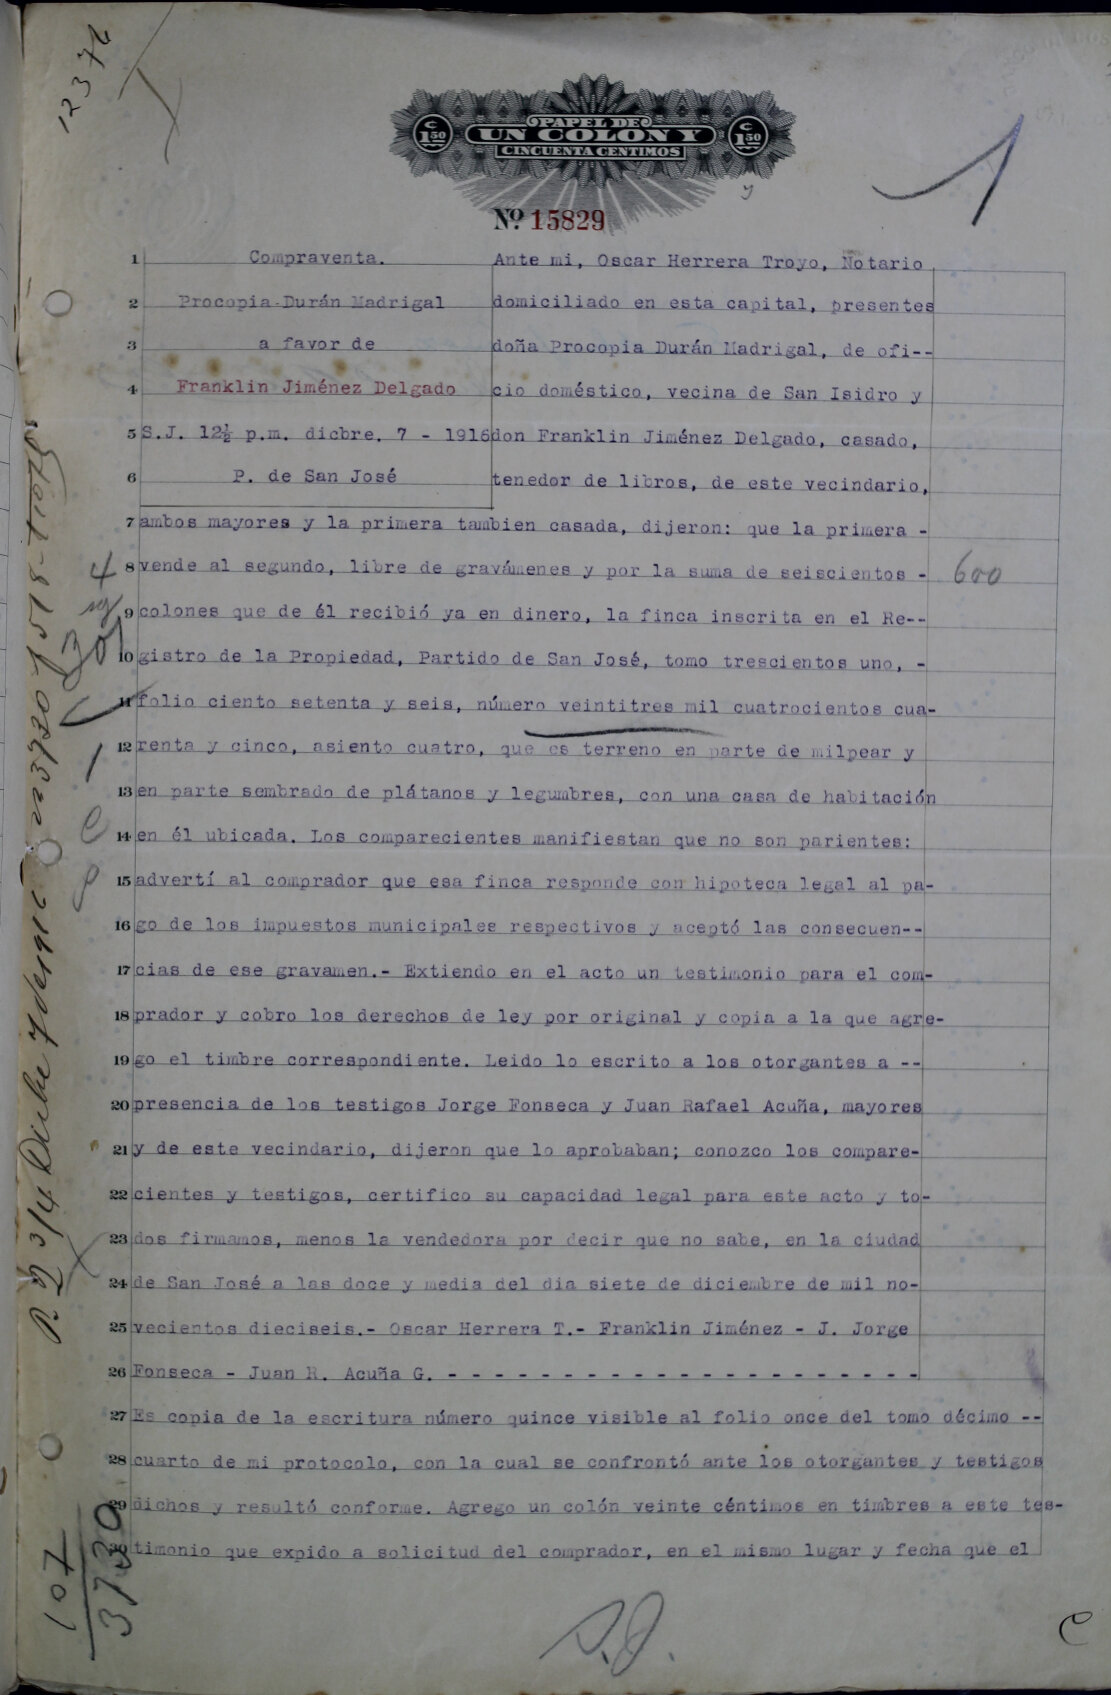 12376
PAPEL DE
C 1 50 UN COLON Y C 1 50
CINCUENTA CENTIMOS
1
Nº 15829
1 Compraventa.
2 Procopia Durán Madrigal
3 a favor de
4 Franklin Jiménez Delgado
5 S.J. 12½ p.m. dicbre. 7 - 1916
6 P. de San José
Ante mi, Oscar Herrera Troyo, Notario
domiciliado en esta capital, presentes
doña Procopia Durán Madrigal, de ofi--
cio doméstico, vecina de San Isidro y
don Franklin Jiménez Delgado, casado,
tenedor de libros, de este vecindario,
7 ambos mayores y la primera tambien casada, dijeron: que la primera -
8 vende al segundo, libre de gravámenes y por la suma de seiscientos - 600
9 colones que de él recibió ya en dinero, la finca inscrita en el Re--
10 gistro de la Propiedad, Partido de San José, tomo trescientos uno, -
11 folio ciento setenta y seis, número veintitres mil cuatrocientos cua-
12 renta y cinco, asiento cuatro, que es terreno en parte de milpear y
13 en parte sembrado de plátanos y legumbres, con una casa de habitación
14 en él ubicada. Los comparecientes manifiestan que no son parientes:
15 advertí al comprador que esa finca responde con hipoteca legal al pa-
16 go de los impuestos municipales respectivos y aceptó las consecuen--
17 cias de ese gravamen.- Extiendo en el acto un testimonio para el com-
18 prador y cobro los derechos de ley por original y copia a la que agre-
19 go el timbre correspondiente. Leido lo escrito a los otorgantes a --
20 presencia de los testigos Jorge Fonseca y Juan Rafael Acuña, mayores
21 y de este vecindario, dijeron que lo aprobaban; conozco los compare-
22 cientes y testigos, certifico su capacidad legal para este acto y to-
23 dos firmamos, menos la vendedora por decir que no sabe, en la ciudad
24 de San José a las doce y media del dia siete de diciembre de mil no-
25 vecientos dieciseis.- Oscar Herrera T.- Franklin Jiménez - J. Jorge
26 Fonseca - Juan R. Acuña G. - - - - - - - - - - - - - - - - - - - - -
27 Es copia de la escritura número quince visible al folio once del tomo décimo --
28 cuarto de mi protocolo, con la cual se confrontó ante los otorgantes y testigos
29 dichos y resultó conforme. Agrego un colón veinte céntimos en timbres a este tes-
timonio que expido a solicitud del comprador, en el mismo lugar y fecha que el
107
3730